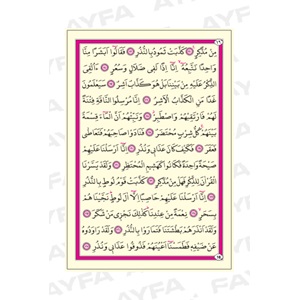 AYFA
مِنْ مُدَّكِرٍ كَذَّبَتْ ثَمُودُ بِالنُّذُرِ فَقَالُوا أَبَشَرًا مِنَّا
وَاحِدًا نَتَّبِعُهُ إِنَّا إِذًا لَفِي ضَلَالٍ وَسُعُرٍ ءَأُلْقِيَ
الذِّكْرُ عَلَيْهِ مِنْ بَيْنِنَا بَلْ هُوَ كَذَّابٌ أَشِرٌ سَيَعْلَمُونَ
غَدًا مَنِ الْكَذَّابُ الْأَشِرُ إِنَّا مُرْسِلُوا النَّاقَةِ فِتْنَةً
لَهُمْ فَارْتَقِبْهُمْ وَاصْطَبِرْ وَنَبِّئْهُمْ أَنَّ الْمَاءَ قِسْمَةٌ
بَيْنَهُمْ كُلُّ شِرْبٍ مُحْتَضَرٌ فَنَادَوْا صَاحِبَهُمْ فَتَعَاطَى
فَعَقَرَ فَكَيْفَ كَانَ عَذَابِي وَنُذُرِ إِنَّا أَرْسَلْنَا عَلَيْهِمْ
صَيْحَةً وَاحِدَةً فَكَانُوا كَهَشِيمِ الْمُحْتَظِرِ وَلَقَدْ يَسَّرْنَا
الْقُرْآنَ لِلذِّكْرِ فَهَلْ مِنْ مُدَّكِرٍ كَذَّبَتْ قَوْمُ لُوطٍ بِالنُّذُرِ
إِنَّا أَرْسَلْنَا عَلَيْهِمْ حَاصِبًا إِلَّا آلَ لُوطٍ نَجَّيْنَاهُمْ
بِسَحَرٍ نِعْمَةً مِنْ عِنْدِنَا كَذَلِكَ نَجْزِي مَنْ شَكَرَ
وَلَقَدْ أَنْذَرَهُمْ بَطْشَتَنَا فَتَمَارَوْا بِالنُّذُرِ وَلَقَدْ رَاوَدُوهُ
عَنْ ضَيْفِهِ فَطَمَسْنَا أَعْيُنَهُمْ فَذُوقُوا عَذَابِي وَنُذُرِ